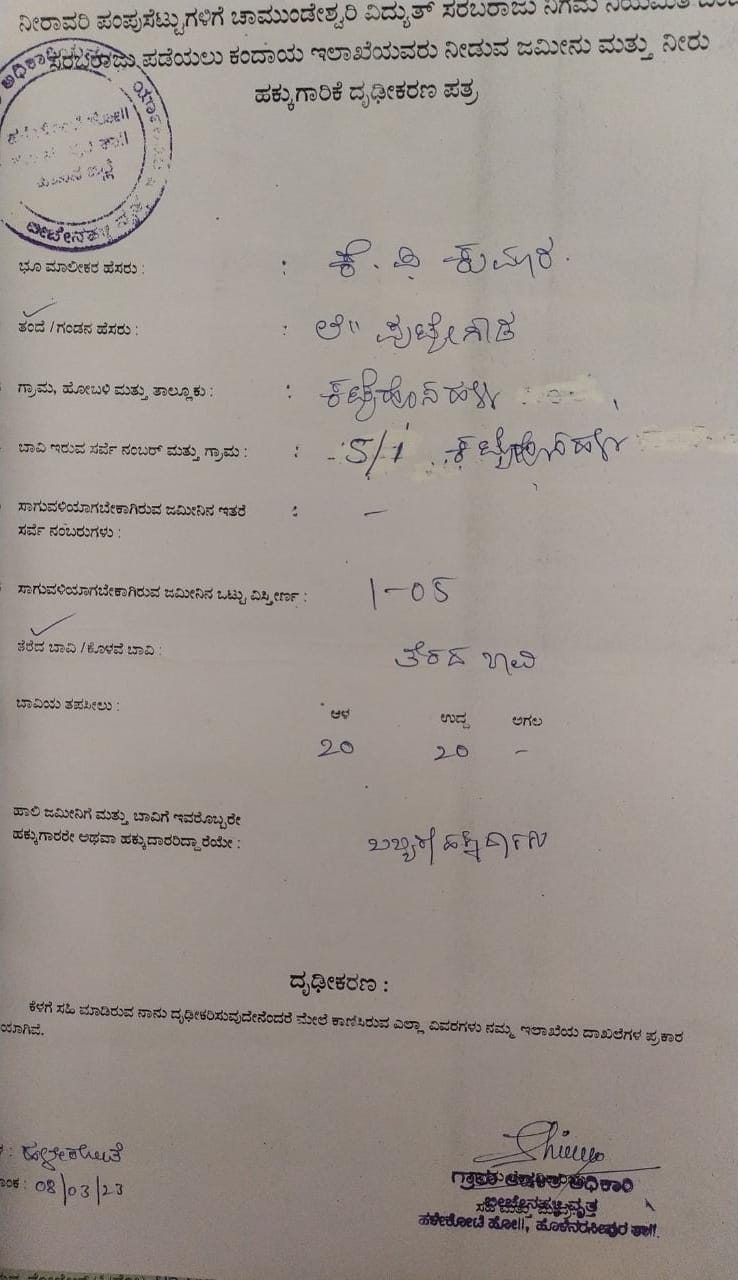 ನೀರಾವರಿ ಪಂಪುಸೆಟ್ಟುಗಳಿಗೆ ಚಾಮುಂಡೇಶ್ವರಿ ವಿದ್ಯುತ್ ಸರಬರಾಜು ನಿಗಮ
ಸರಬರಾಜು ಪಡೆಯಲು ಕಂದಾಯ ಇಲಾಖೆಯವರು ನೀಡುವ ಜಮೀನು ಮತ್ತು ನೀರು
ಹಕ್ಕುಗಾರಿಕೆ ದೃಢೀಕರಣ ಪತ್ರ
ಭೂ ಮಾಲೀಕರ ಹೆಸರು : : ಕೆ. ಪಿ ಕುಮಾರ.
ತಂದೆ / ಗಂಡನ ಹೆಸರು : : ಲೇ" ಪುಟ್ಟೇಗೌಡ
ಗ್ರಾಮ, ಹೋಬಳಿ ಮತ್ತು ತಾಲ್ಲೂಕು : :
ಬಾವಿ ಇರುವ ಸರ್ವೆ ನಂಬರ್ ಮತ್ತು ಗ್ರಾಮ : : 5/1
ಸಾಗುವಳಿಯಾಗಬೇಕಾಗಿರುವ ಜಮೀನಿನ ಇತರೆ : –
ಸರ್ವೆ ನಂಬರುಗಳು :
ಸಾಗುವಳಿಯಾಗಬೇಕಾಗಿರುವ ಜಮೀನಿನ ಒಟ್ಟು ವಿಸ್ತೀರ್ಣ : 1-05
ತೆರೆದ ಬಾವಿ / ಕೊಳವೆ ಬಾವಿ : ತೆರೆದ ಬಾವಿ
ಬಾವಿಯ ತಪಸೀಲು : ಆಳ ಉದ್ದ ಅಗಲ
20 20 –
ಹಾಲಿ ಜಮೀನಿಗೆ ಮತ್ತು ಬಾವಿಗೆ ಇವರೊಬ್ಬರೇ
ಹಕ್ಕುಗಾರರೇ ಅಥವಾ ಹಕ್ಕುದಾರರಿದ್ದಾರೆಯೇ : ಒಬ್ಬರೆ ಹಕ್ಕುದಾರರು
ದೃಢೀಕರಣ :
ಕೆಳಗೆ ಸಹಿ ಮಾಡಿರುವ ನಾನು ದೃಢೀಕರಿಸುವುದೇನೆಂದರೆ ಮೇಲೆ ಕಾಣಿಸಿರುವ ಎಲ್ಲಾ ವಿವರಗಳು ನಮ್ಮ ಇಲಾಖೆಯ ದಾಖಲೆಗಳ ಪ್ರಕಾರ
ಯಾಗಿವೆ.
: ಹಳೇಕೋಟೆ
ಾಂಕ : 08/03/23
ಗ್ರಾಮ ಆಡಳಿತ ಅಧಿಕಾರಿ
ಬೀಚೇನಹಳ್ಳಿ ವೃತ್ತ
ಹಳೇಕೋಟೆ ಹೋ||, ಹೊಳೆನರಸೀಪುರ ತಾ||.